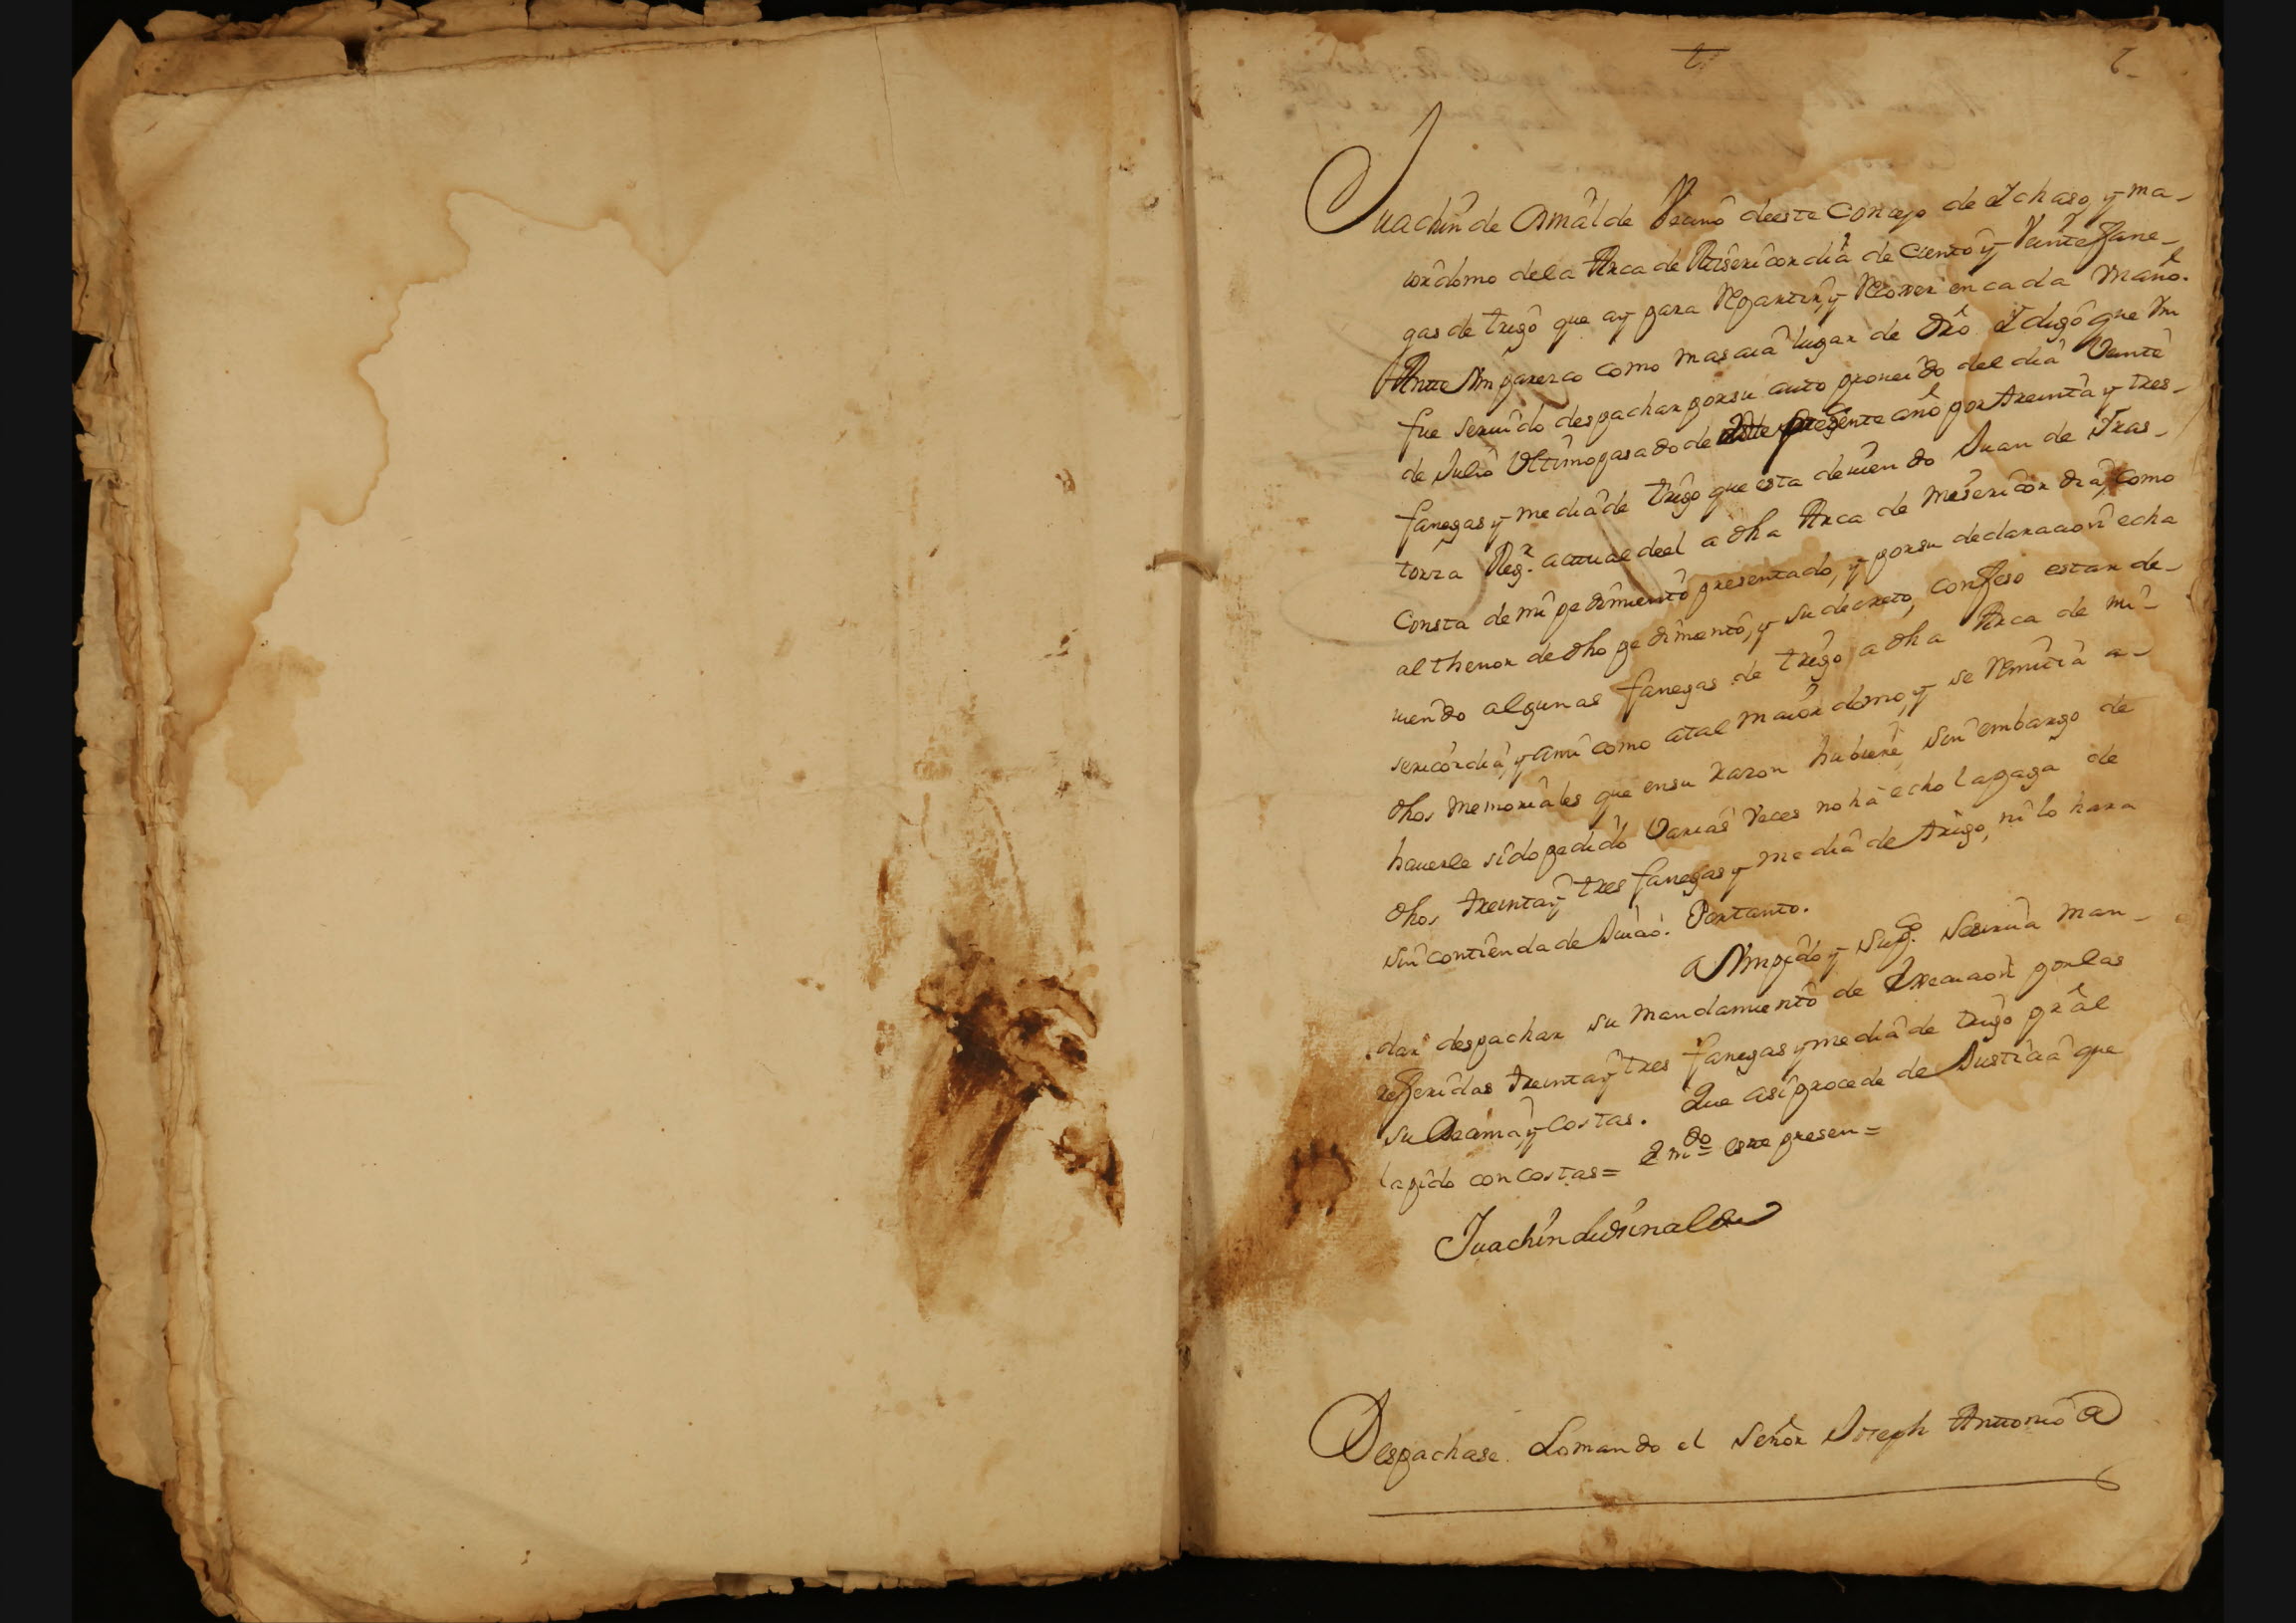 t.
Juachin de Asmâl de Vecinô deeste Concejo de Ychaso, y ma-
iordomo dela Arca de Misericordiâ de Ciento y Veinte fane-
gas de trigô que ay para Repartir, y Recojer en cada Vn año.
Ante Vm parezco como mas aiâ lugar de dro. Y digô que Vm
fue seruido despachar por su auto proueido del diâ Veinte
de Juliô Vltimo pasado de este presente año por treinta y tres
fanegas y mediâ de trigo que esta deuiendo Juan de Yras-
torza Reg.r actual deel a dha Arca de Misericordiâ, como
Consta de mi pedimiento presentado, y por su declaracion echa
al thenor de dho pedimento, y su decreto, confeso estar de-
uiendo algunas fanegas de trigo a dha Arca de mi-
sericordiâ, y ami como atal maiordomo, y se Remitiâ a-
dhos Memoriales que ensu razon hubiere, sin embargo de
hauerle sido pedido Variâs Veces no hâ echo la paga de
dhos treinta y tres fanegas y mediâ de trigo, ni lo hara
sin contienda de Juiciô. Portanto.
A Vm pido y Sup.co se sirua man-
dar despachar su mandamiento de Execucion por las
referidas treinta y tres fanegas y mediâ de trigo prâl
su decima, y costas. Que asi procede de Justiciâ que
la pido con costas= E m.do este presen=
Juachin de
Despachase. Lo mando el Señor Joseph Antonio